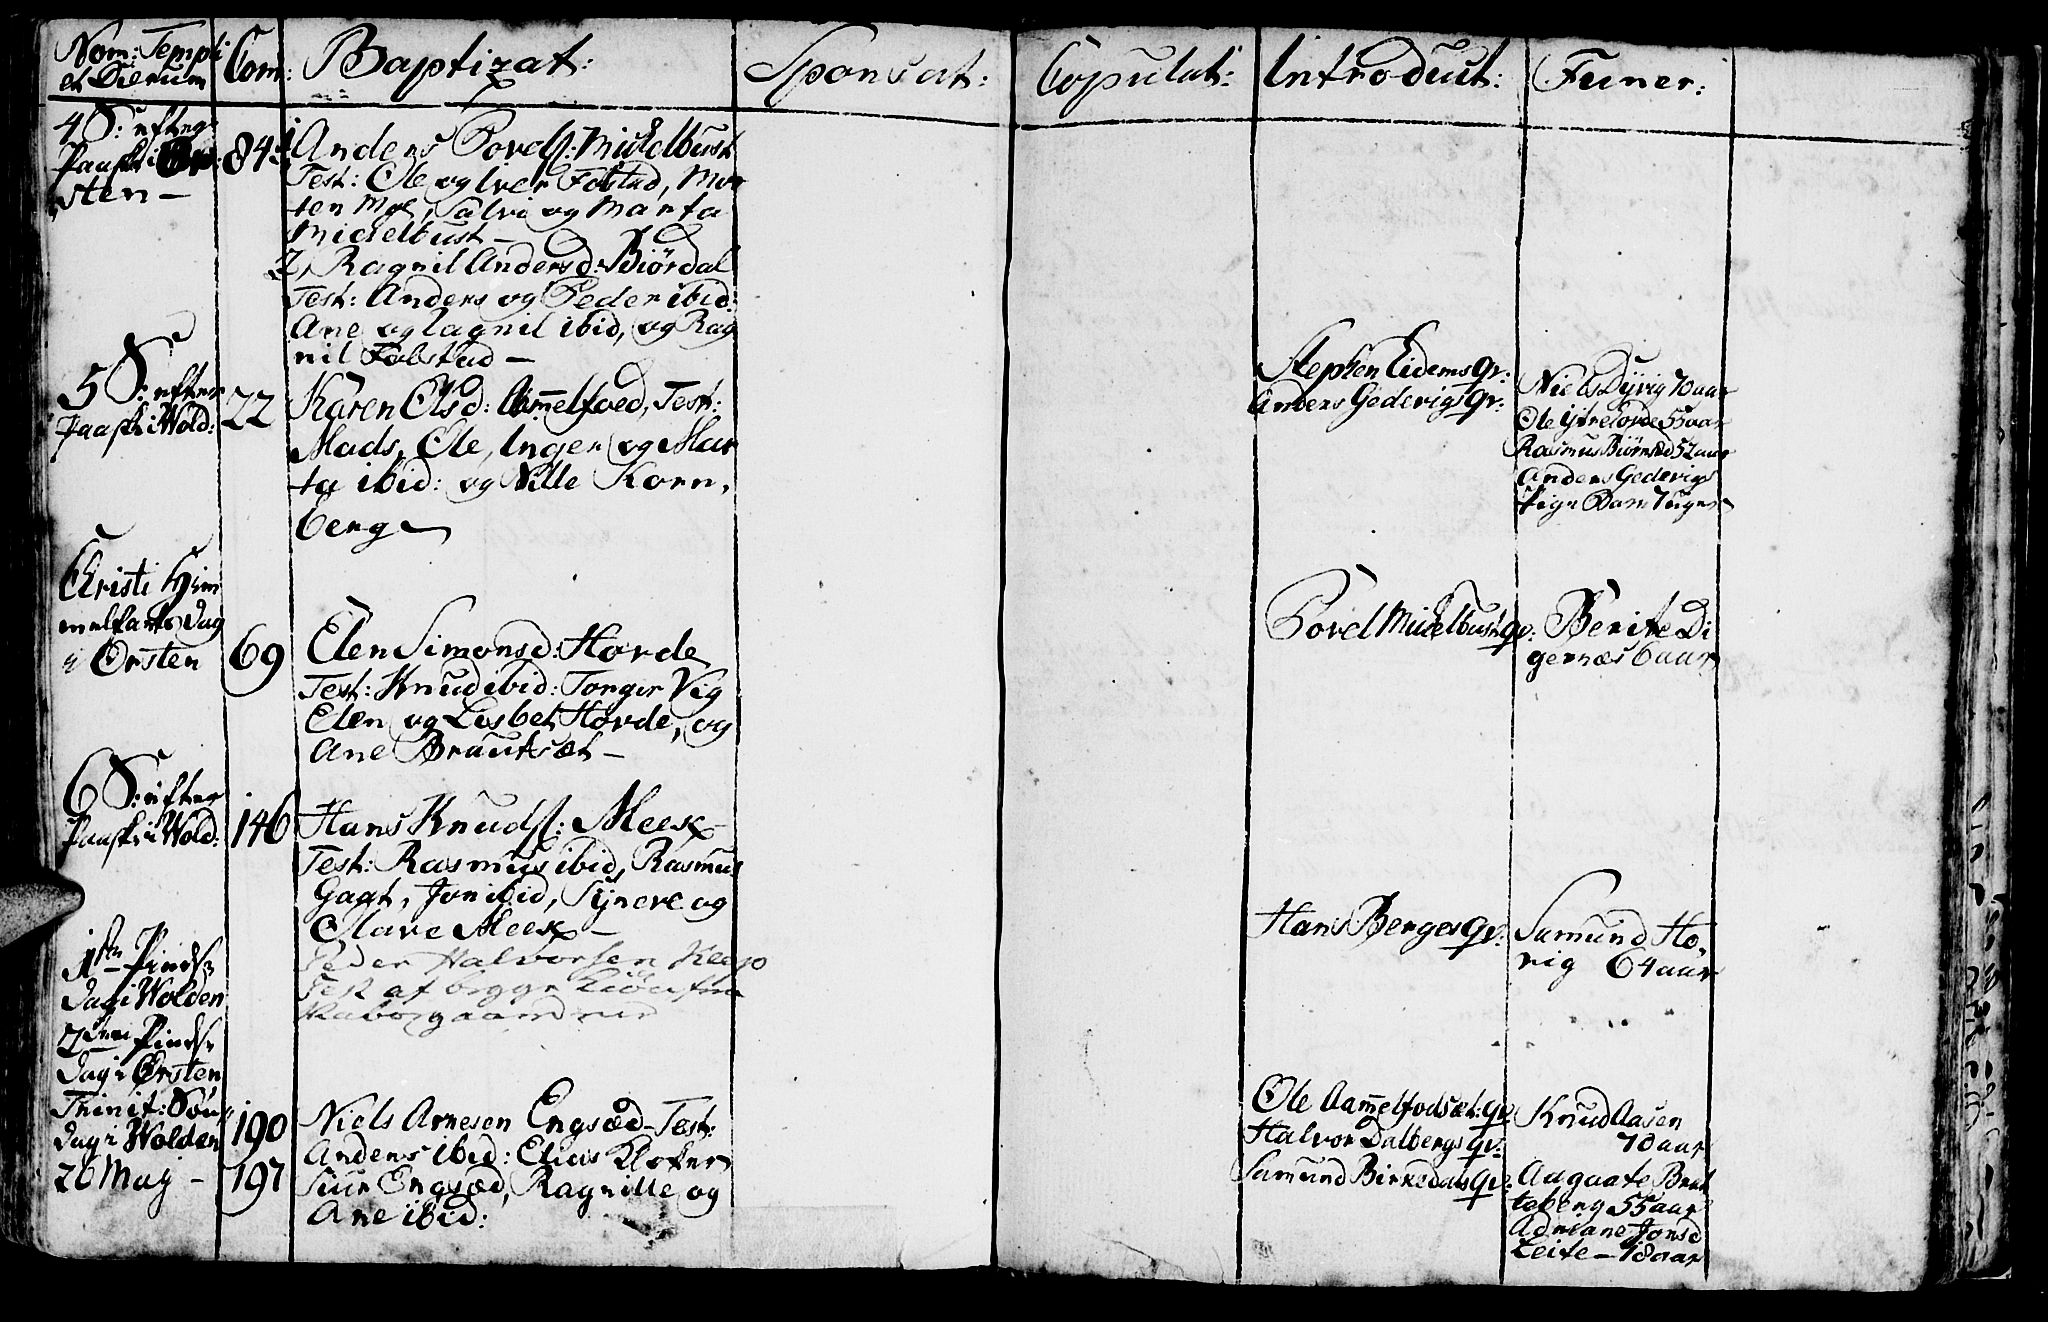 Nom: Templi
et Dierum
Com:
Baptizat:
Sponsat:
Copulat:
Introduct:
Funer:
4 S: efter
Paaske i Ør-
sten –
84
1, Anders Povels: Mickelbust
Test: Ole og Iver Folstad, Mor
ten Moe, Salvi og Marta
Mickelbust –
2, Ragnil Andersd: Biørdal
Test: Anders og Peder ibid:
Ane og Ragnil ibid, og Rag
nil Folstad –
5 S: efter
Paaske i Wold:
22
Karen Elsd: Aamelfoed, Test:
Mads, Ole, Inger og Mar
ta ibid: og Nille Korn,
berg
Stephen Eidems qv:
Anders Gedevigs qv:
Niels Dyvig 70 aar
Ole Ytrehorde 55 aar
Rasmus Biørnæd 52 aar
Anders Gedevigs
Pige Barn 7 uger
Christi Him
melfarts Dag
i Ørsten
69
Elen Simonsd: Hovde
Test: Knud ibid: Torger Vig
Elen og Lisbet Hovde, og
Ane Brautsæt –
Povel Mickelbust qv:
Berite Di
gernæs 6 aar
6 S: efter
Paaske i Wold:
146
Hans Knuds: Meek –
Test: Rasmus ibid, Rasmus
Gagt, Jon ibid, Synere og
Mare Meek –
1ste Pindse
Dag i Wolden
Peder Halvorsen Klep
Test af begge Kiøn fra
Naboegaardene
Hans Berges qv:
Samund Ho,
vig 64 aar
2den Pindse
Dag i Ørsten
Trinit: Søn-
dag i Wolden
190
26 Maj –
197
Niels Arnesen Engsæd – Test:
Anders ibid: Elias Kloker
Siur Engsæd, Ragnille og
Ane ibid:
Ole Aamelfodsæt: qv:
Halvor Dalbergs qv:
Samund Birkedals qv:
Knud Aasen
70 aar
Aagaate Brat
teberg 55 aar
Adriane Jonsd
Leite – 18 aar